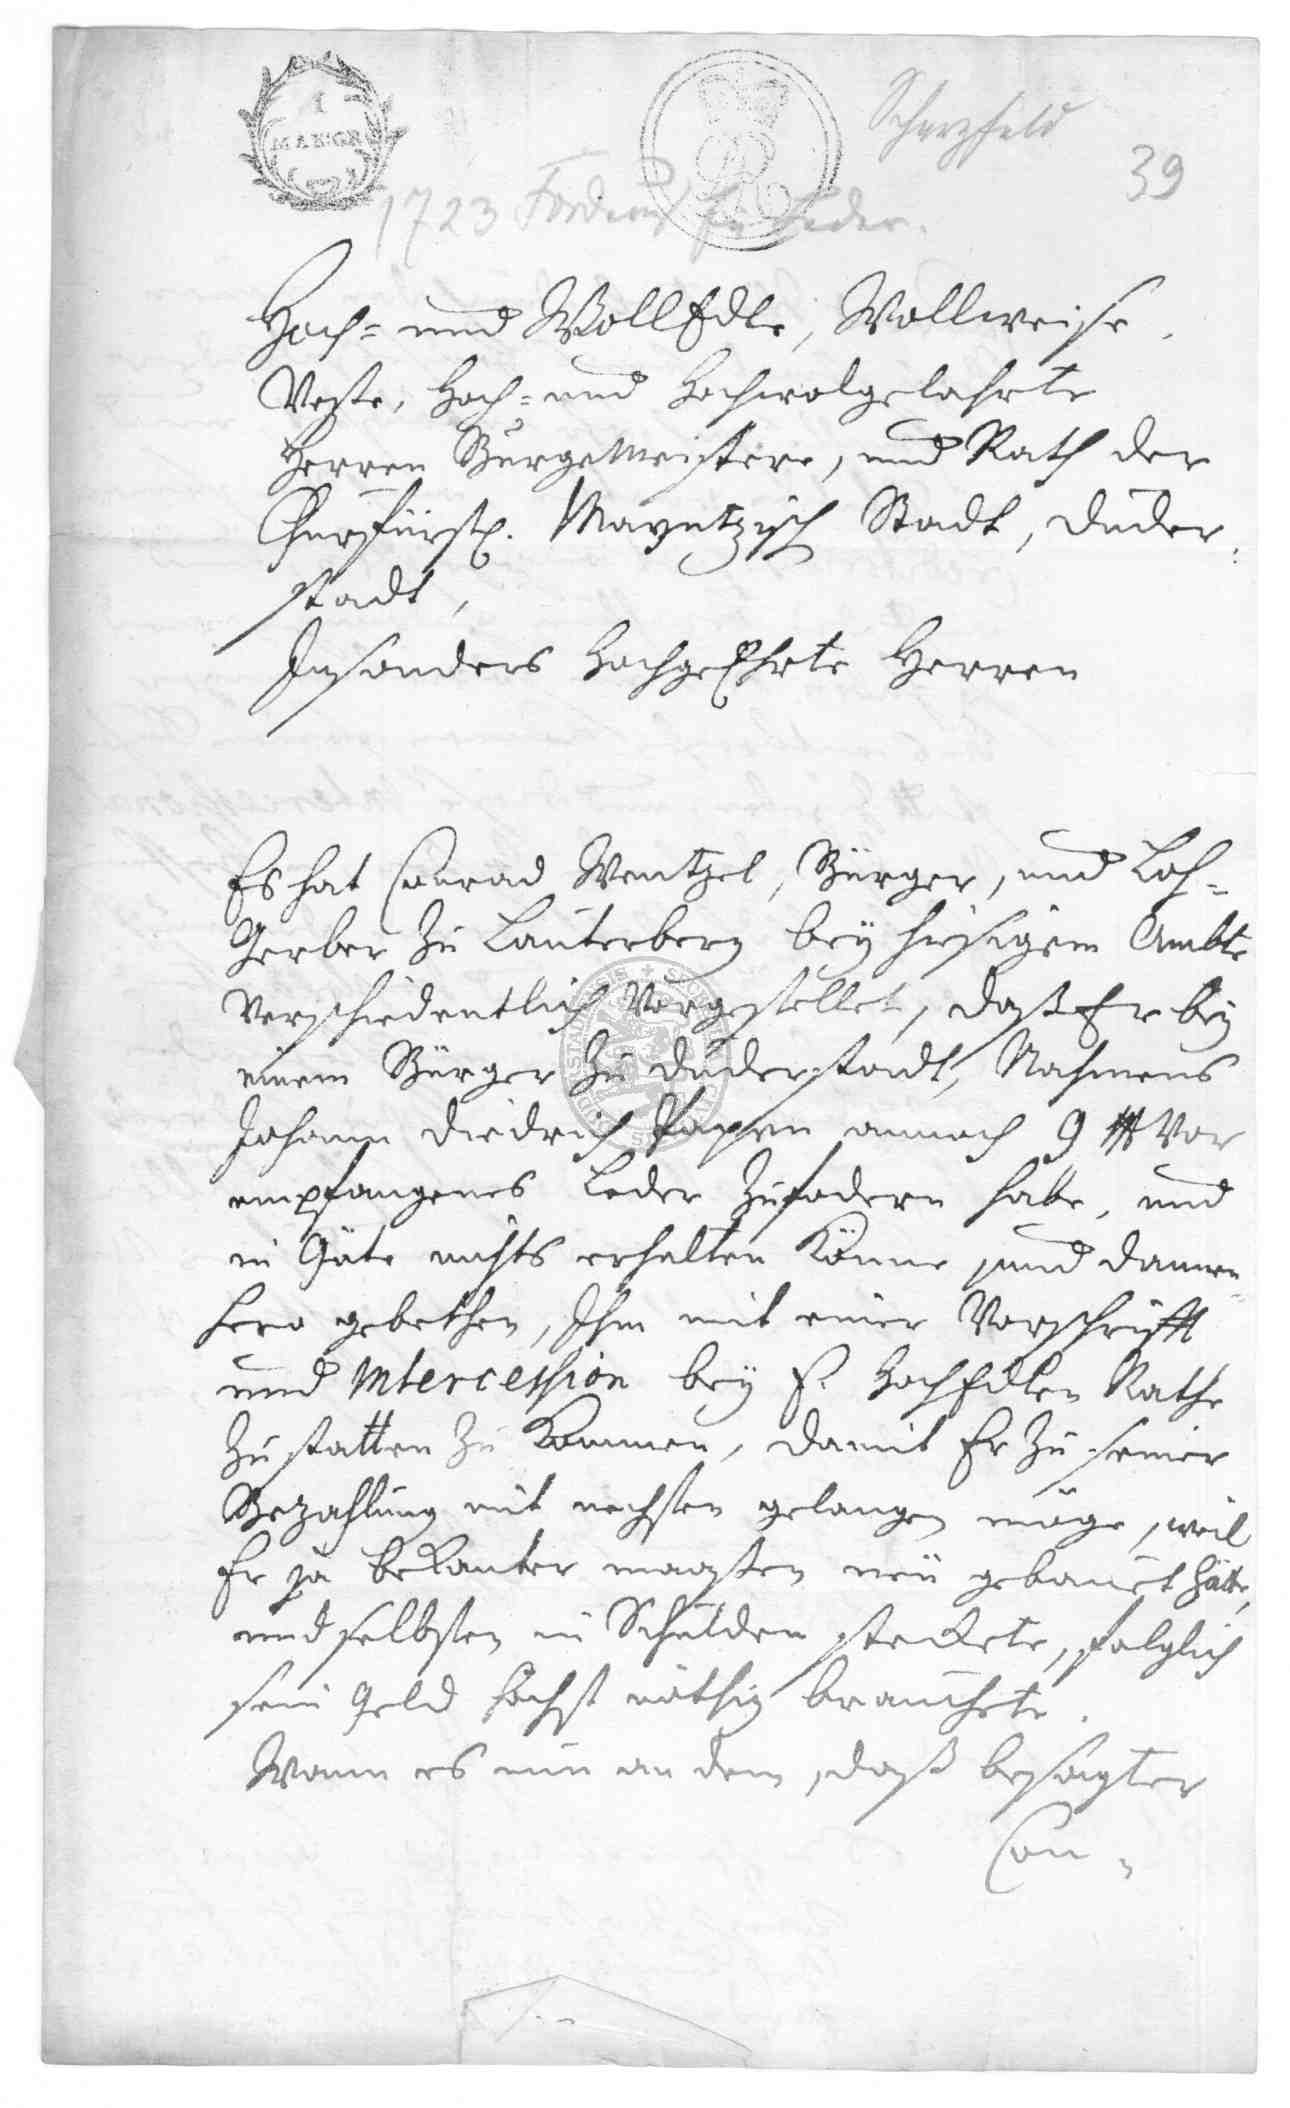 1
MAR:GR
Scharzfeld
39
1723 Forderung für Leder.
Hoch= und WollEdle, Wollweise,
Veste, Hoch= und Hochwolgelahrte
Herren Burgemeistere, und Rath der
Churfürstl. Mayntzisch Stadt, Duder=
stadt,
Insonders HochgeEhrte Herren
Es hat Conrad Wentzel, Bürger, und Loh=
Gerber zu Lauterberg bey hiesigem Ambte
verschiedentlich vorgestellet, daß Er bey
einem Bürger zu Duderstadt, Nahmens
Johann Diedrich Papen annoch 9 vor
empfangenes Leder zufodern habe, und
in Güte nichts erhalten könne, und dannen=
hero gebethen, Ihm mit einer Vorschrifft
und Intercession bey E. HochEdlen Rathe
zu statten zu kommen, damit Er zu seiner
Bezahlung mit nechsten gelangen möge, weil
Er ja bekanter maaßen neu gebauet hätte,
und selbsten in Schulden steckete, folglich
sein Geld höchst nöthig brauchete.
Wann es nun an dem, daß besagter
Con=